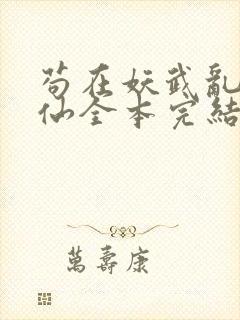 苟在妖武亂
仙全本完結
萬壽康